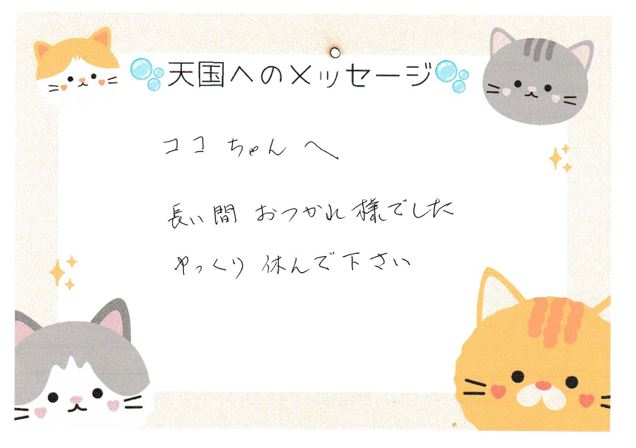 天国へのメッセージ
ココちゃんへ
長い間 おつかれ様でした
ゆっくり 休んで下さい